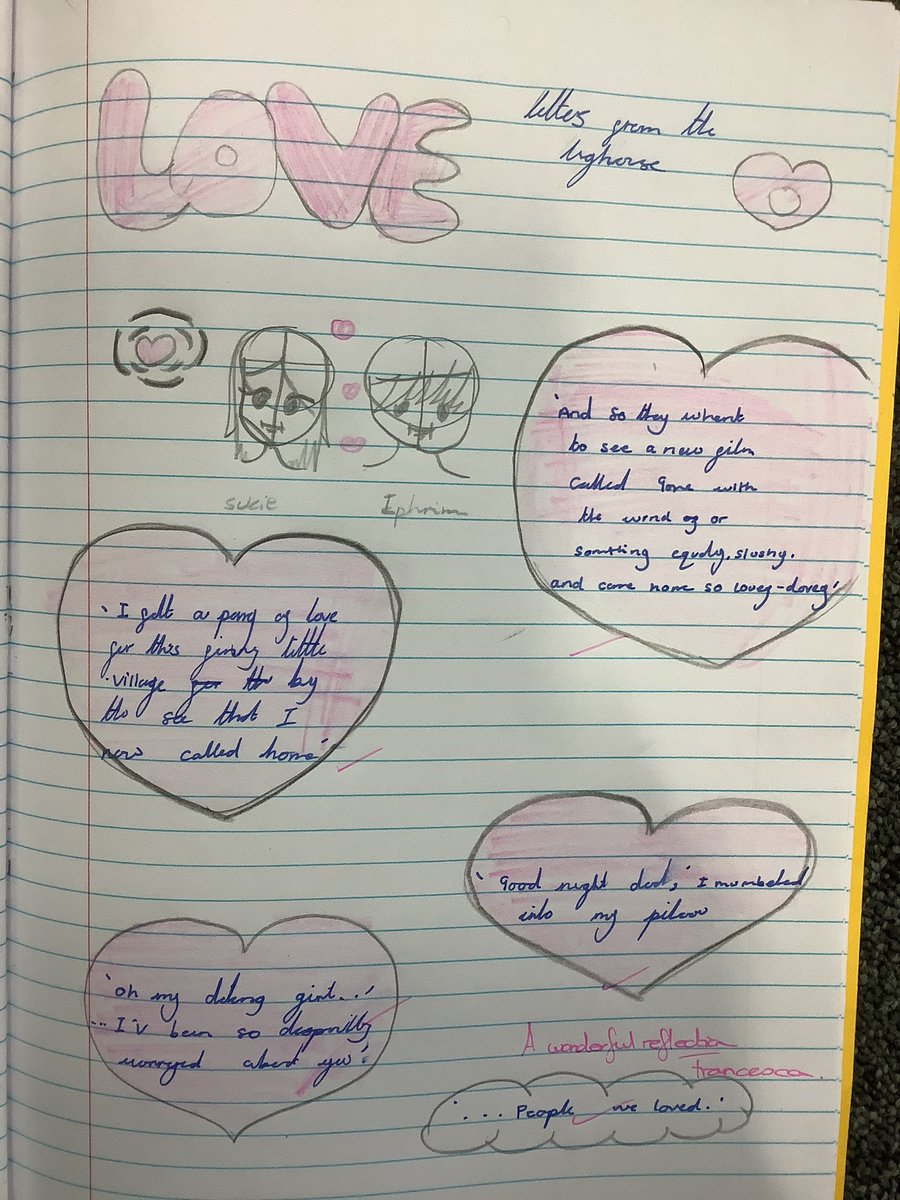 LOVE
letters from the
lighouse
sukie
Ephrim
'And so they whent
to see a new film
called gone with
the wind of or
somthing equaly slushy.
and came home so lovey-dovey'
'I felt a pang of love
for this funny little
village for the by
the sea that I
now called home'
'Good night dad,' I mumbeled
into my pillow
'oh my daling girl...'
...I'v been so desparilly
worryed about you'
A wonderful reflection
Francesca.
'... People we loved.'